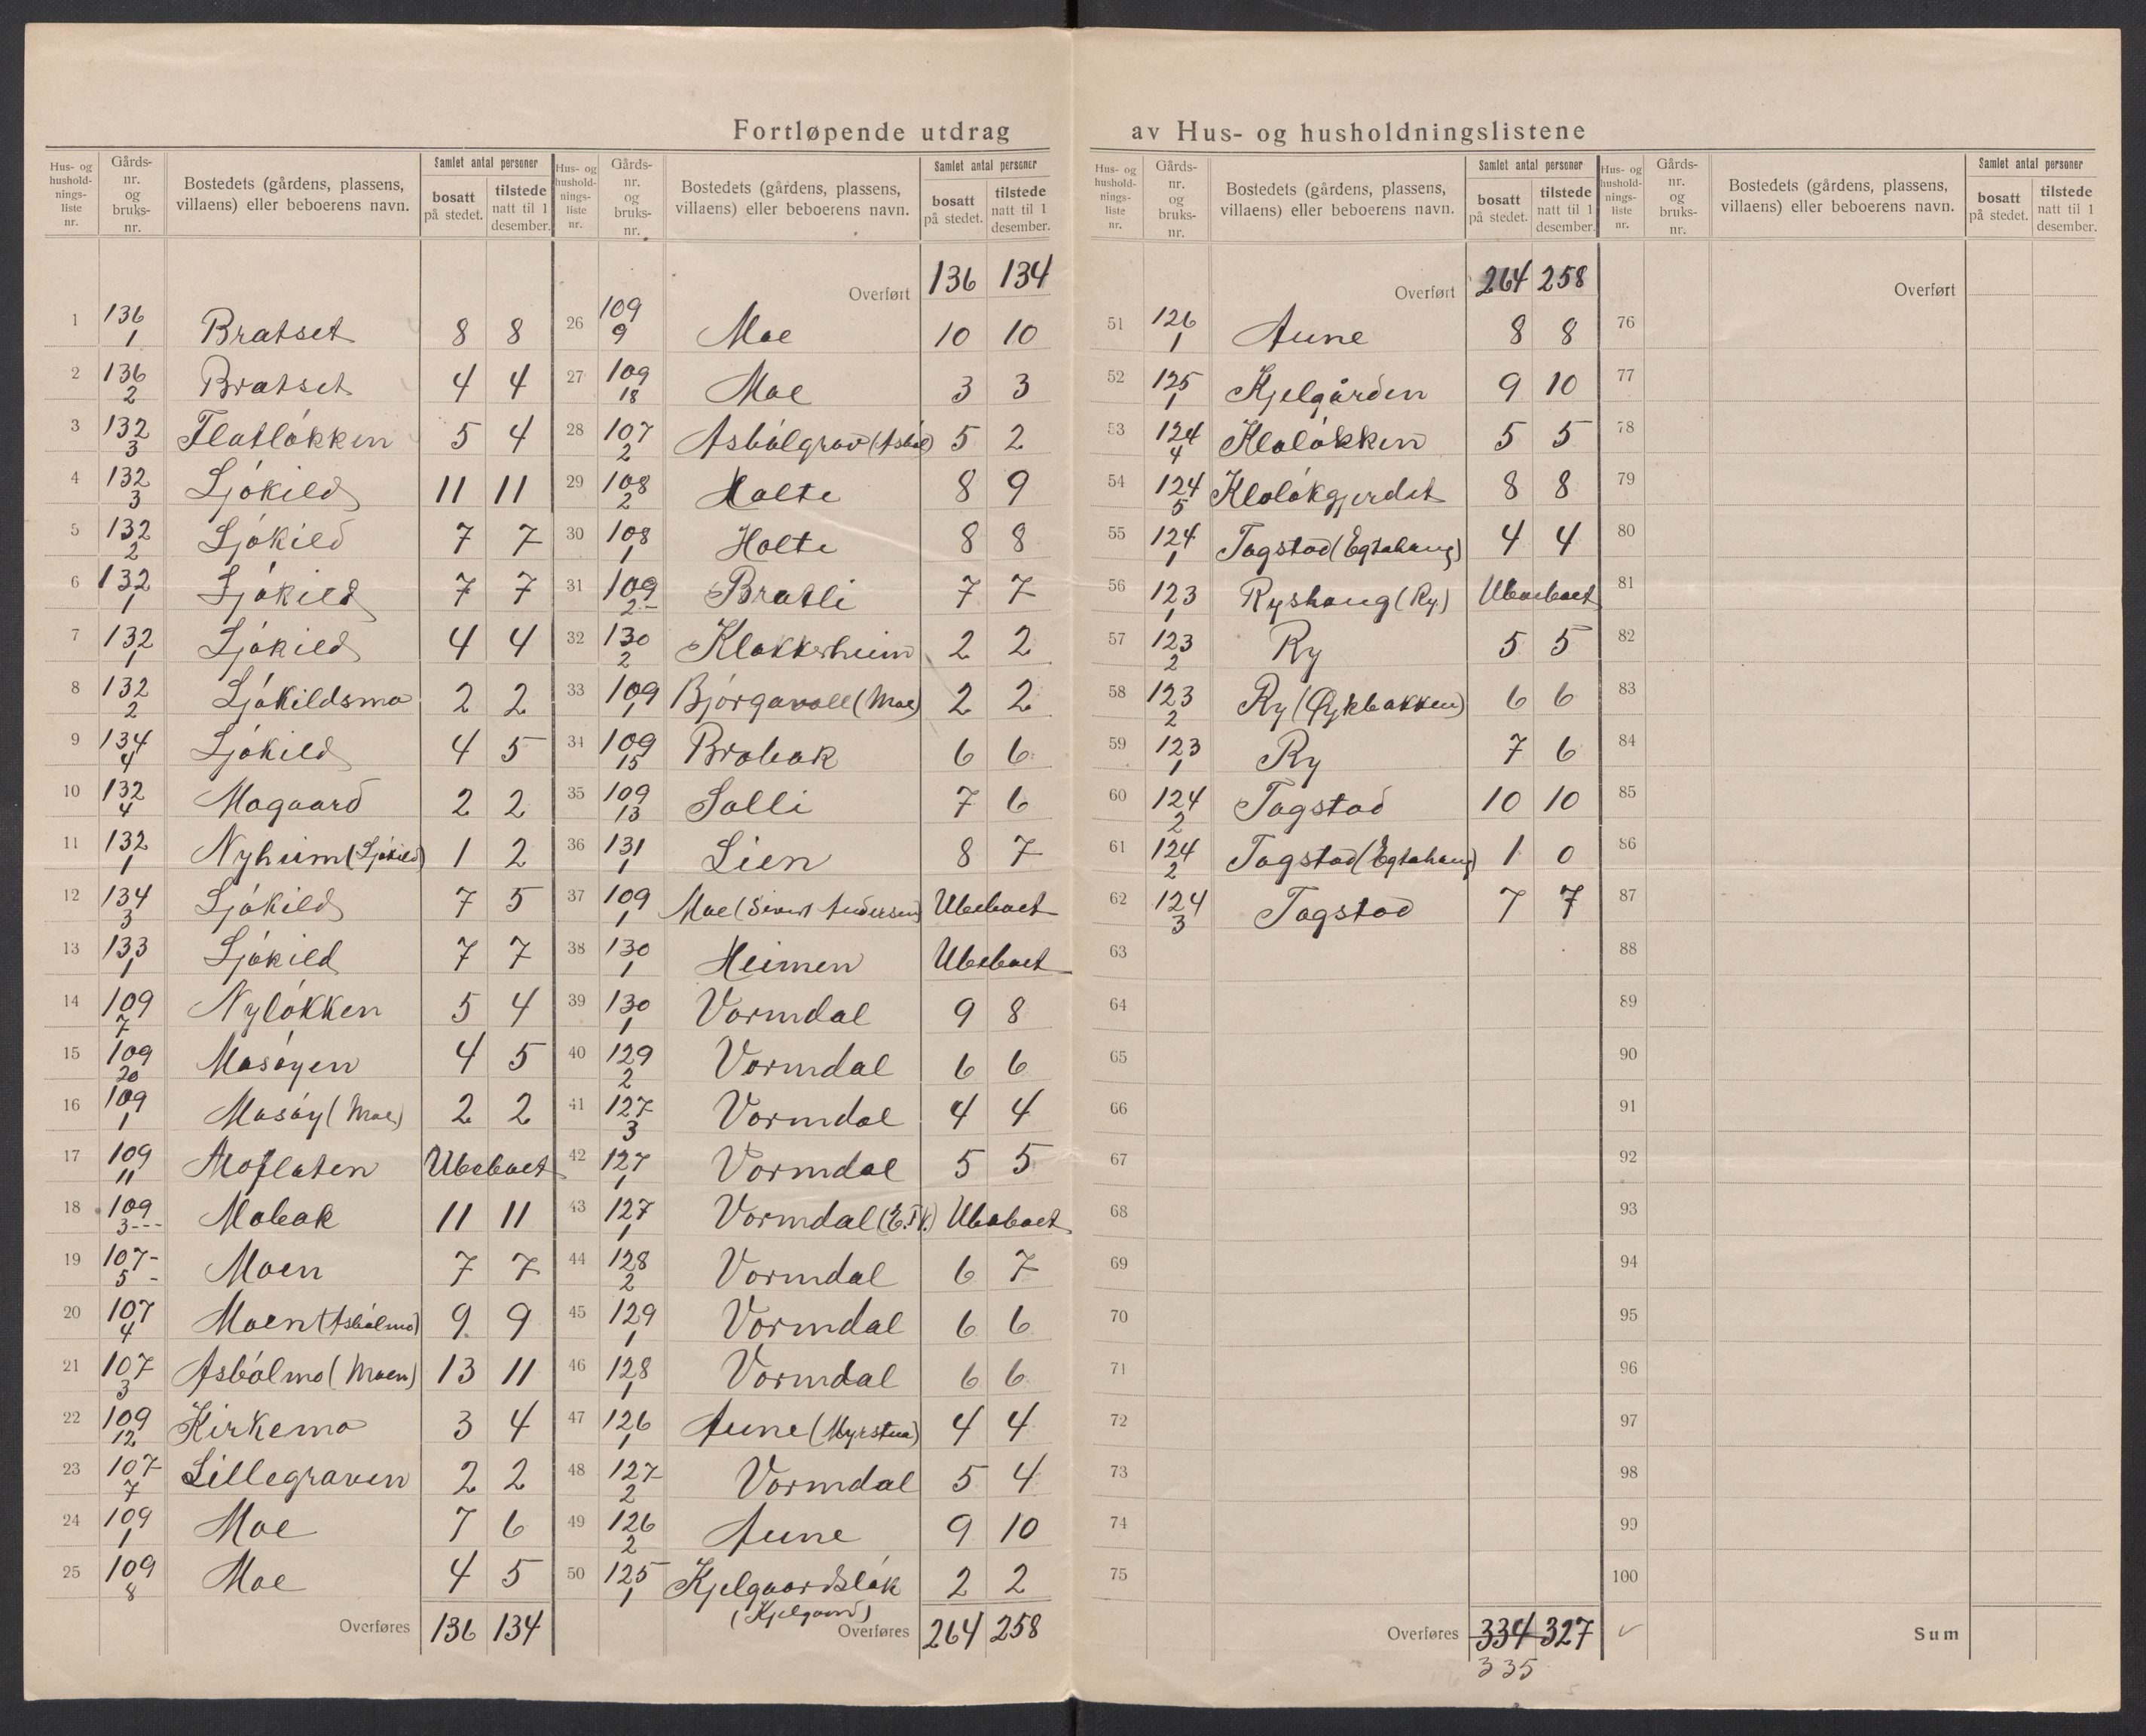 Fortløpende utdrag av Hus- og husholdningslistene
Hus- og husholdningsliste nr. | Gårds-nr. og bruks-nr. | Bostedets (gårdens, plassens, villaens) eller beboerens navn. | Samlet antal personer | bosatt på stedet. | tilstede natt til 1 desember.
1 136/1 Bratset 8 8
2 136/2 Bratset 4 4
3 132/3 Flatløkken 5 4
4 132/3 Ljøkild 11 11
5 132/2 Ljøkild 7 7
6 132/1 Ljøkild 7 7
7 132/1 Ljøkild 4 4
8 132/2 Ljøkildsmo 2 2
9 134/4 Ljøkild 4 5
10 132/4 Mogaard 2 2
11 132/1 Nyheim (Ljøkild) 1 2
12 134/3 Ljøkild 7 5
13 133/1 Ljøkild 7 7
14 109/7 Nyløkken 5 4
15 109/20 Mosøyen 4 5
16 109/1 Mosøy (Moe) 2 2
17 109/11 Moflaten Ubeboet
18 109/3 Mobak 11 11
19 107/5 Moen 7 7
20 107/4 Moen (Asbølmo) 9 9
21 107/3 Asbølmo (Moen) 13 11
22 109/12 Kirkemo 3 4
23 107/7 Lillegraven 2 2
24 109/1 Moe 7 6
25 109/8 Moe 4 5
Overføres 136 134
Hus- og husholdningsliste nr. | Gårds-nr. og bruks-nr. | Bostedets (gårdens, plassens, villaens) eller beboerens navn. | Samlet antal personer | bosatt på stedet. | tilstede natt til 1 desember.
Overført 136 134
26 109/9 Moe 10 10
27 109/18 Moe 3 3
28 107/2 Asbølgrav (Asbøl) 5 2
29 108/2 Holte 8 9
30 108/1 Holte 8 8
31 109/2 Bratli 7 7
32 130/2 Klokkerheim 2 2
33 109/1 Bjørgavoll (Moe) 2 2
34 109/15 Brobak 6 6
35 109/13 Solli 7 6
36 131/1 Lien 8 7
37 109/1 Moe (Sivert Andersen) Ubeboet
38 130/1 Heimen Ubeboet
39 130/1 Vormdal 9 8
40 129/2 Vormdal 6 6
41 127/3 Vormdal 4 4
42 127/1 Vormdal 5 5
43 127/1 Vormdal (E.T.V.) Ubeboet
44 128/2 Vormdal 6 7
45 129/1 Vormdal 6 6
46 128/1 Vormdal 6 6
47 126/1 Aune (Myrstua) 4 4
48 127/2 Vormdal 5 4
49 126/2 Aune 9 10
50 125/1 Kjelgaardsløk 2 2
(Kjelgaard)
Overføres 264 258
Hus- og husholdningsliste nr. | Gårds-nr. og bruks-nr. | Bostedets (gårdens, plassens, villaens) eller beboerens navn. | Samlet antal personer | bosatt på stedet. | tilstede natt til 1 desember.
Overført 264 258
51 126/1 Aune 8 8
52 125/1 Kjelgården 9 10
53 124/4 Kloløkken 5 5
54 124/5 Kloløkgjerdet 8 8
55 124/1 Togstad (Egtahaug) 4 4
56 123/1 Ryshaug (Ry) Ubeboet
57 123/2 Ry 5 5
58 123/2 Ry (Øykbakken) 6 6
59 123/1 Ry 7 6
60 124/2 Togstad 10 10
61 124/2 Togstad (Egtahaug) 1 0
62 124/3 Togstad 7 7
63
64
65
66
67
68
69
70
71
72
73
74
75
Overføres 334 327
335
Hus- og husholdningsliste nr. | Gårds-nr. og bruks-nr. | Bostedets (gårdens, plassens, villaens) eller beboerens navn. | Samlet antal personer | bosatt på stedet. | tilstede natt til 1 desember.
Overført
76
77
78
79
80
81
82
83
84
85
86
87
88
89
90
91
92
93
94
95
96
97
98
99
100
✓
Sum